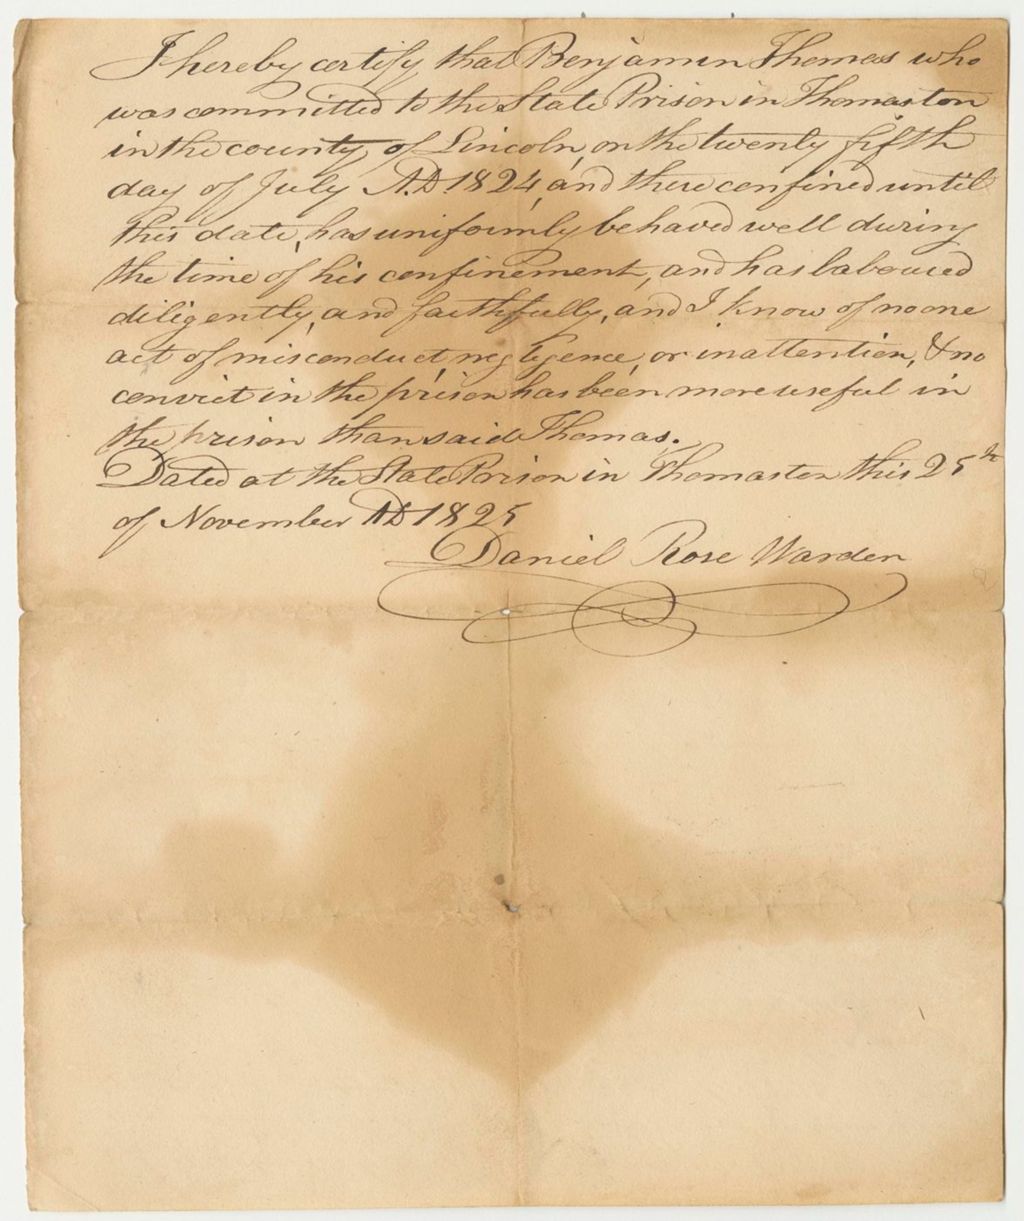 I hereby certify, that Benjamin Thomas who
was committed to the State Prison in Thomaston
in the county, of Lincoln, on the twenty fifth
day of July A.D. 1824, and there confined until
this date, has uniformly behaved well during
the time of his confinement, and has laboured
diligently, and faithfully, and I know of no one
act of misconduct, negligence, or inattention, & no
convict in the prison has been more useful in
the prison than said Thomas.
Dated at the State Prison in Thomaston this 25th
of November AD 1825
Daniel Rose Warden